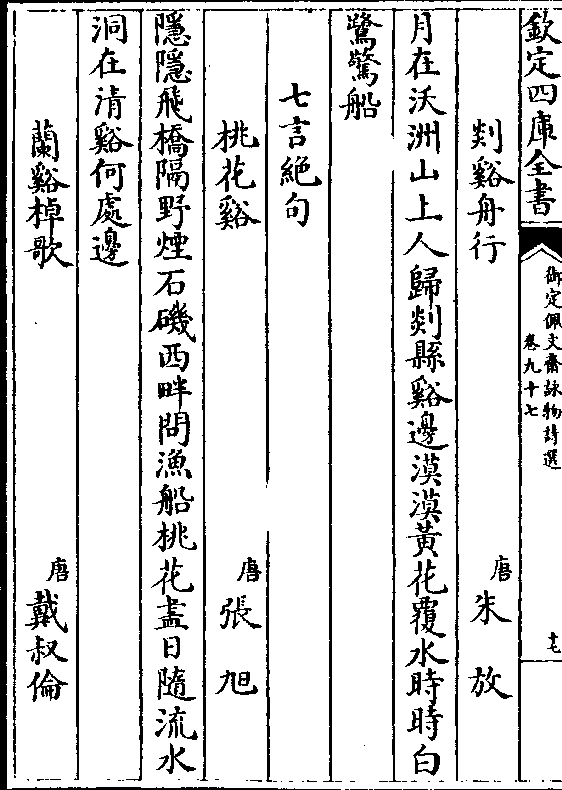 欽定四庫全書
御定佩文齋詠物詩選
卷九十七
十七
剡谿舟行
唐
朱放
月在沃洲山上人歸剡縣谿邊漠漠黃花覆水時時白
鷺驚船
七言絶句
桃花谿
唐
張旭
隱隱飛橋隔野煙石磯西畔問漁船桃花盡日隨流水
洞在清谿何處邊
蘭谿棹歌
唐
戴叔倫